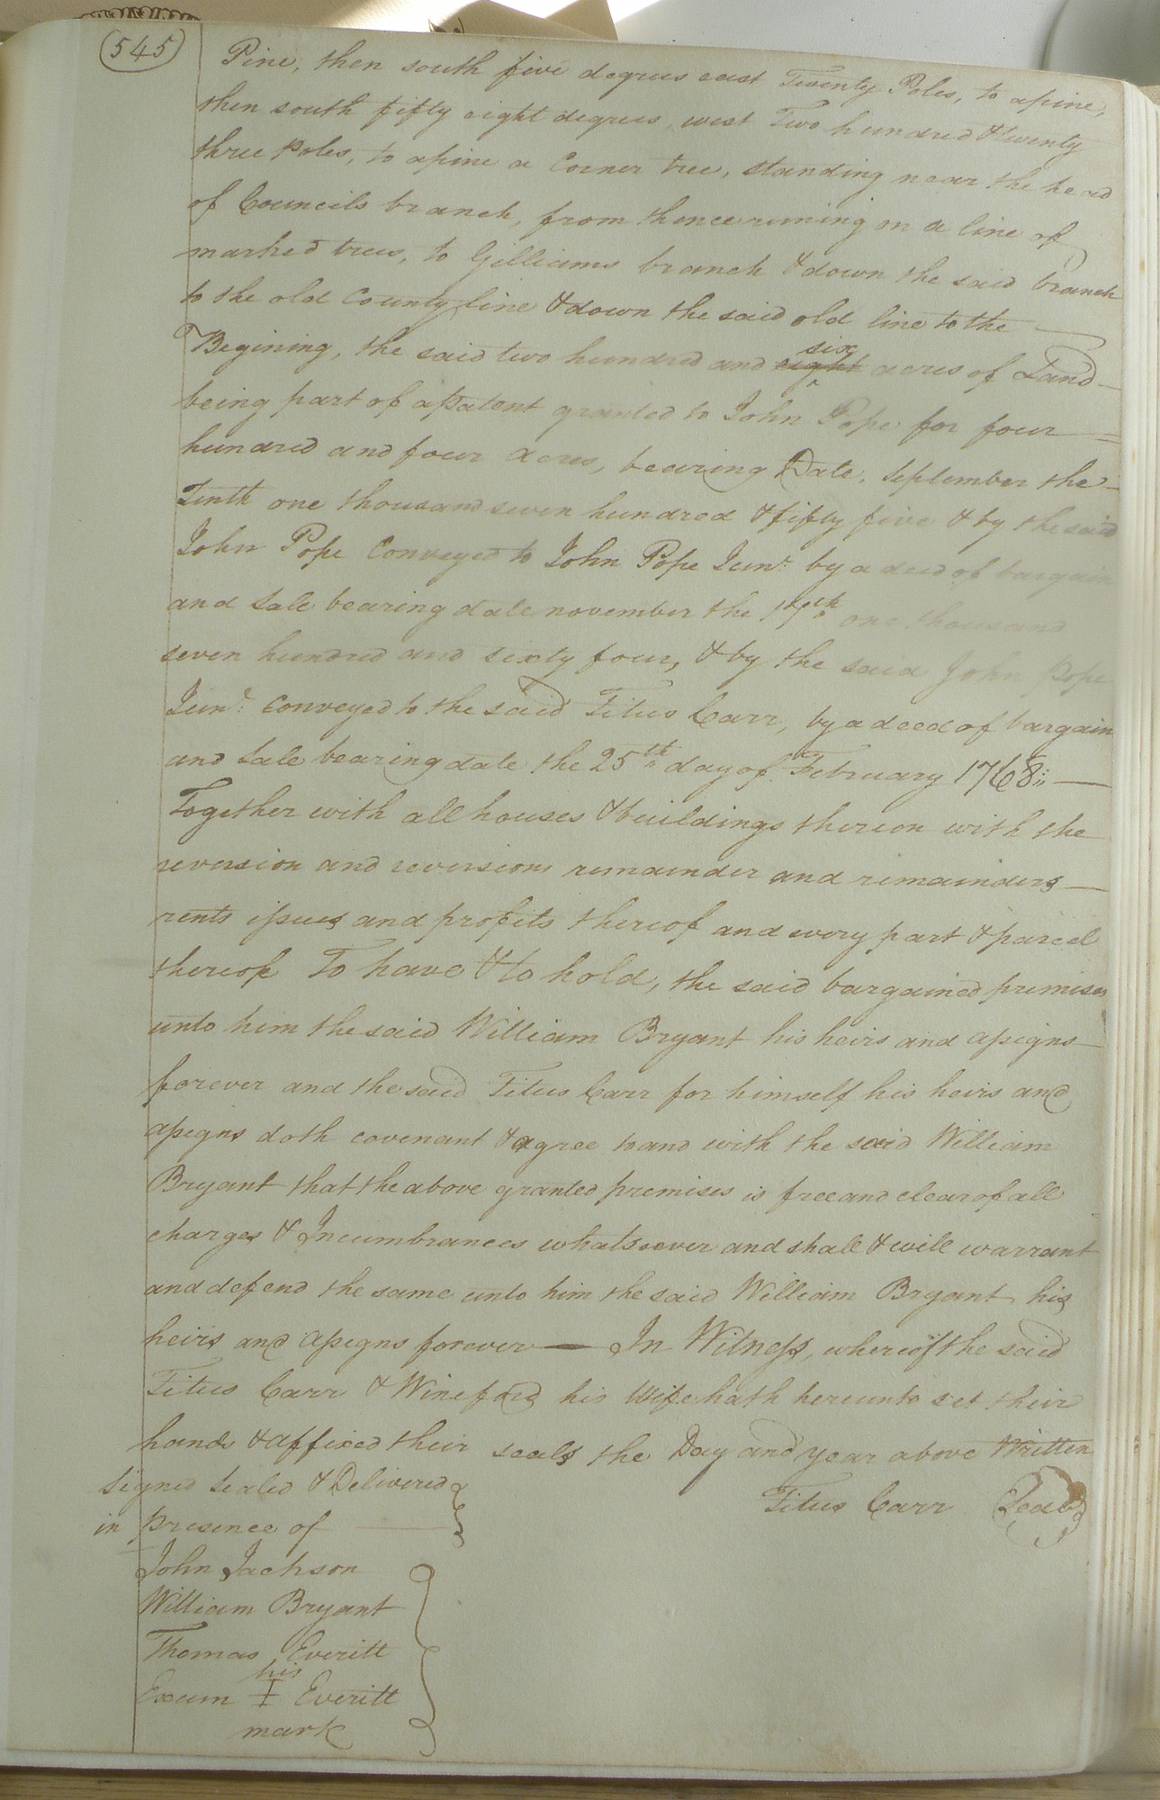 545
Pine, then south five degrees east Twenty Poles, to apine,
then south fifty eight degrees, west Two hundred & twenty
three Poles, to apine a Corner tree, standing near the head
of Councils branch, from thence runing on a line of
marked trees, to Gilliams branch & down the said branch
to the old County line & down the said old line to the
Begining, the said two hundred and eight six acres of Land
being part of a Patent granted to John Pope for four
hundred and four acres, bearing Date, September the
Tenth one thousand seven hundred & fifty five & by the said
John Pope Conveyed to John Pope Junr. by a deed of bargain
and Sale bearing date november the 17th one thousand
seven hundred and sixty four, & by the said John Pope
Junr. Conveyed to the said Titus Carr, by a deed of bargain
and Sale bearing date the 25th day of February 1768
Together with all houses & buildings thereon with the
reversion and reversions remainder and remainders
rents issues and profits thereof and every part & parcel
thereof To have & to hold, the said bargained premises
unto him the said William Bryant his heirs and assigns
forever and the said Titus Carr for himself his heirs and
assigns doth covenant & agree to and with the said William
Bryant that the above granted premises is free and clear of all
charges & Incumbrances whatsoever and shall & will warrant
and defend the same unto him the said William Bryant his
heirs and assigns forever — In Witness, whereof the said
Titus Carr & Winefred his Wife hath hereunto set their
hands & affixed their seals the Day and year above Written
Signed Sealed & Delivered
in presence of
Titus Carr Seal
John Jackson
William Bryant
Thomas Everitt
his
Exum I Everitt
mark